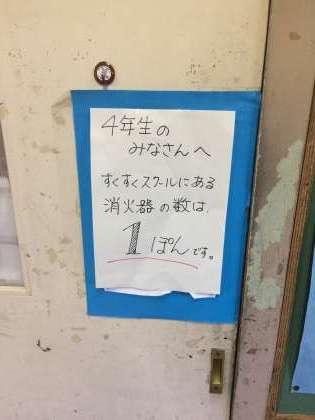 4年生の
みなさんへ
すくすくスクールにある
消火器の数は
1ぽんです。